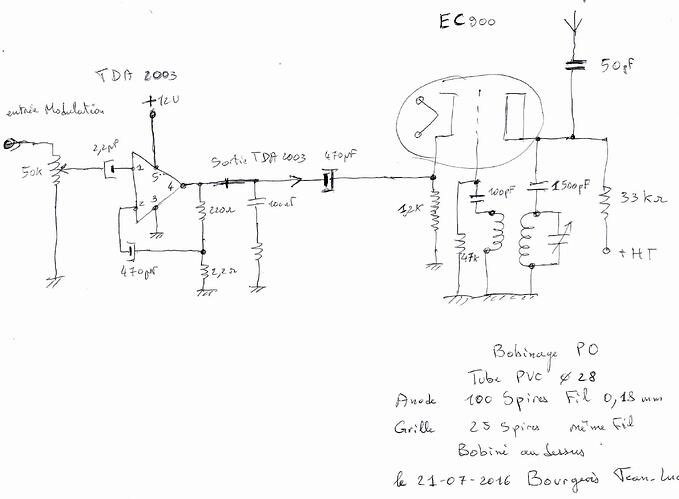 EC 900
50pF
TDA 2003
+12V
entrée Modulation
2,2µF
50K
1
5
4
2
3
Sortie TDA 2003
470µF
220Ω
100nF
470µF
2,2Ω
1,2K
100pF
47K
1500pF
33kΩ
+HT
Bobinage PO
Tube PVC ø 28
Anode 100 Spires Fil 0,18 mm
Grille 25 Spires même Fil
Bobiné au dessus
le 21-07-2016 Bourgeois Jean-Luc